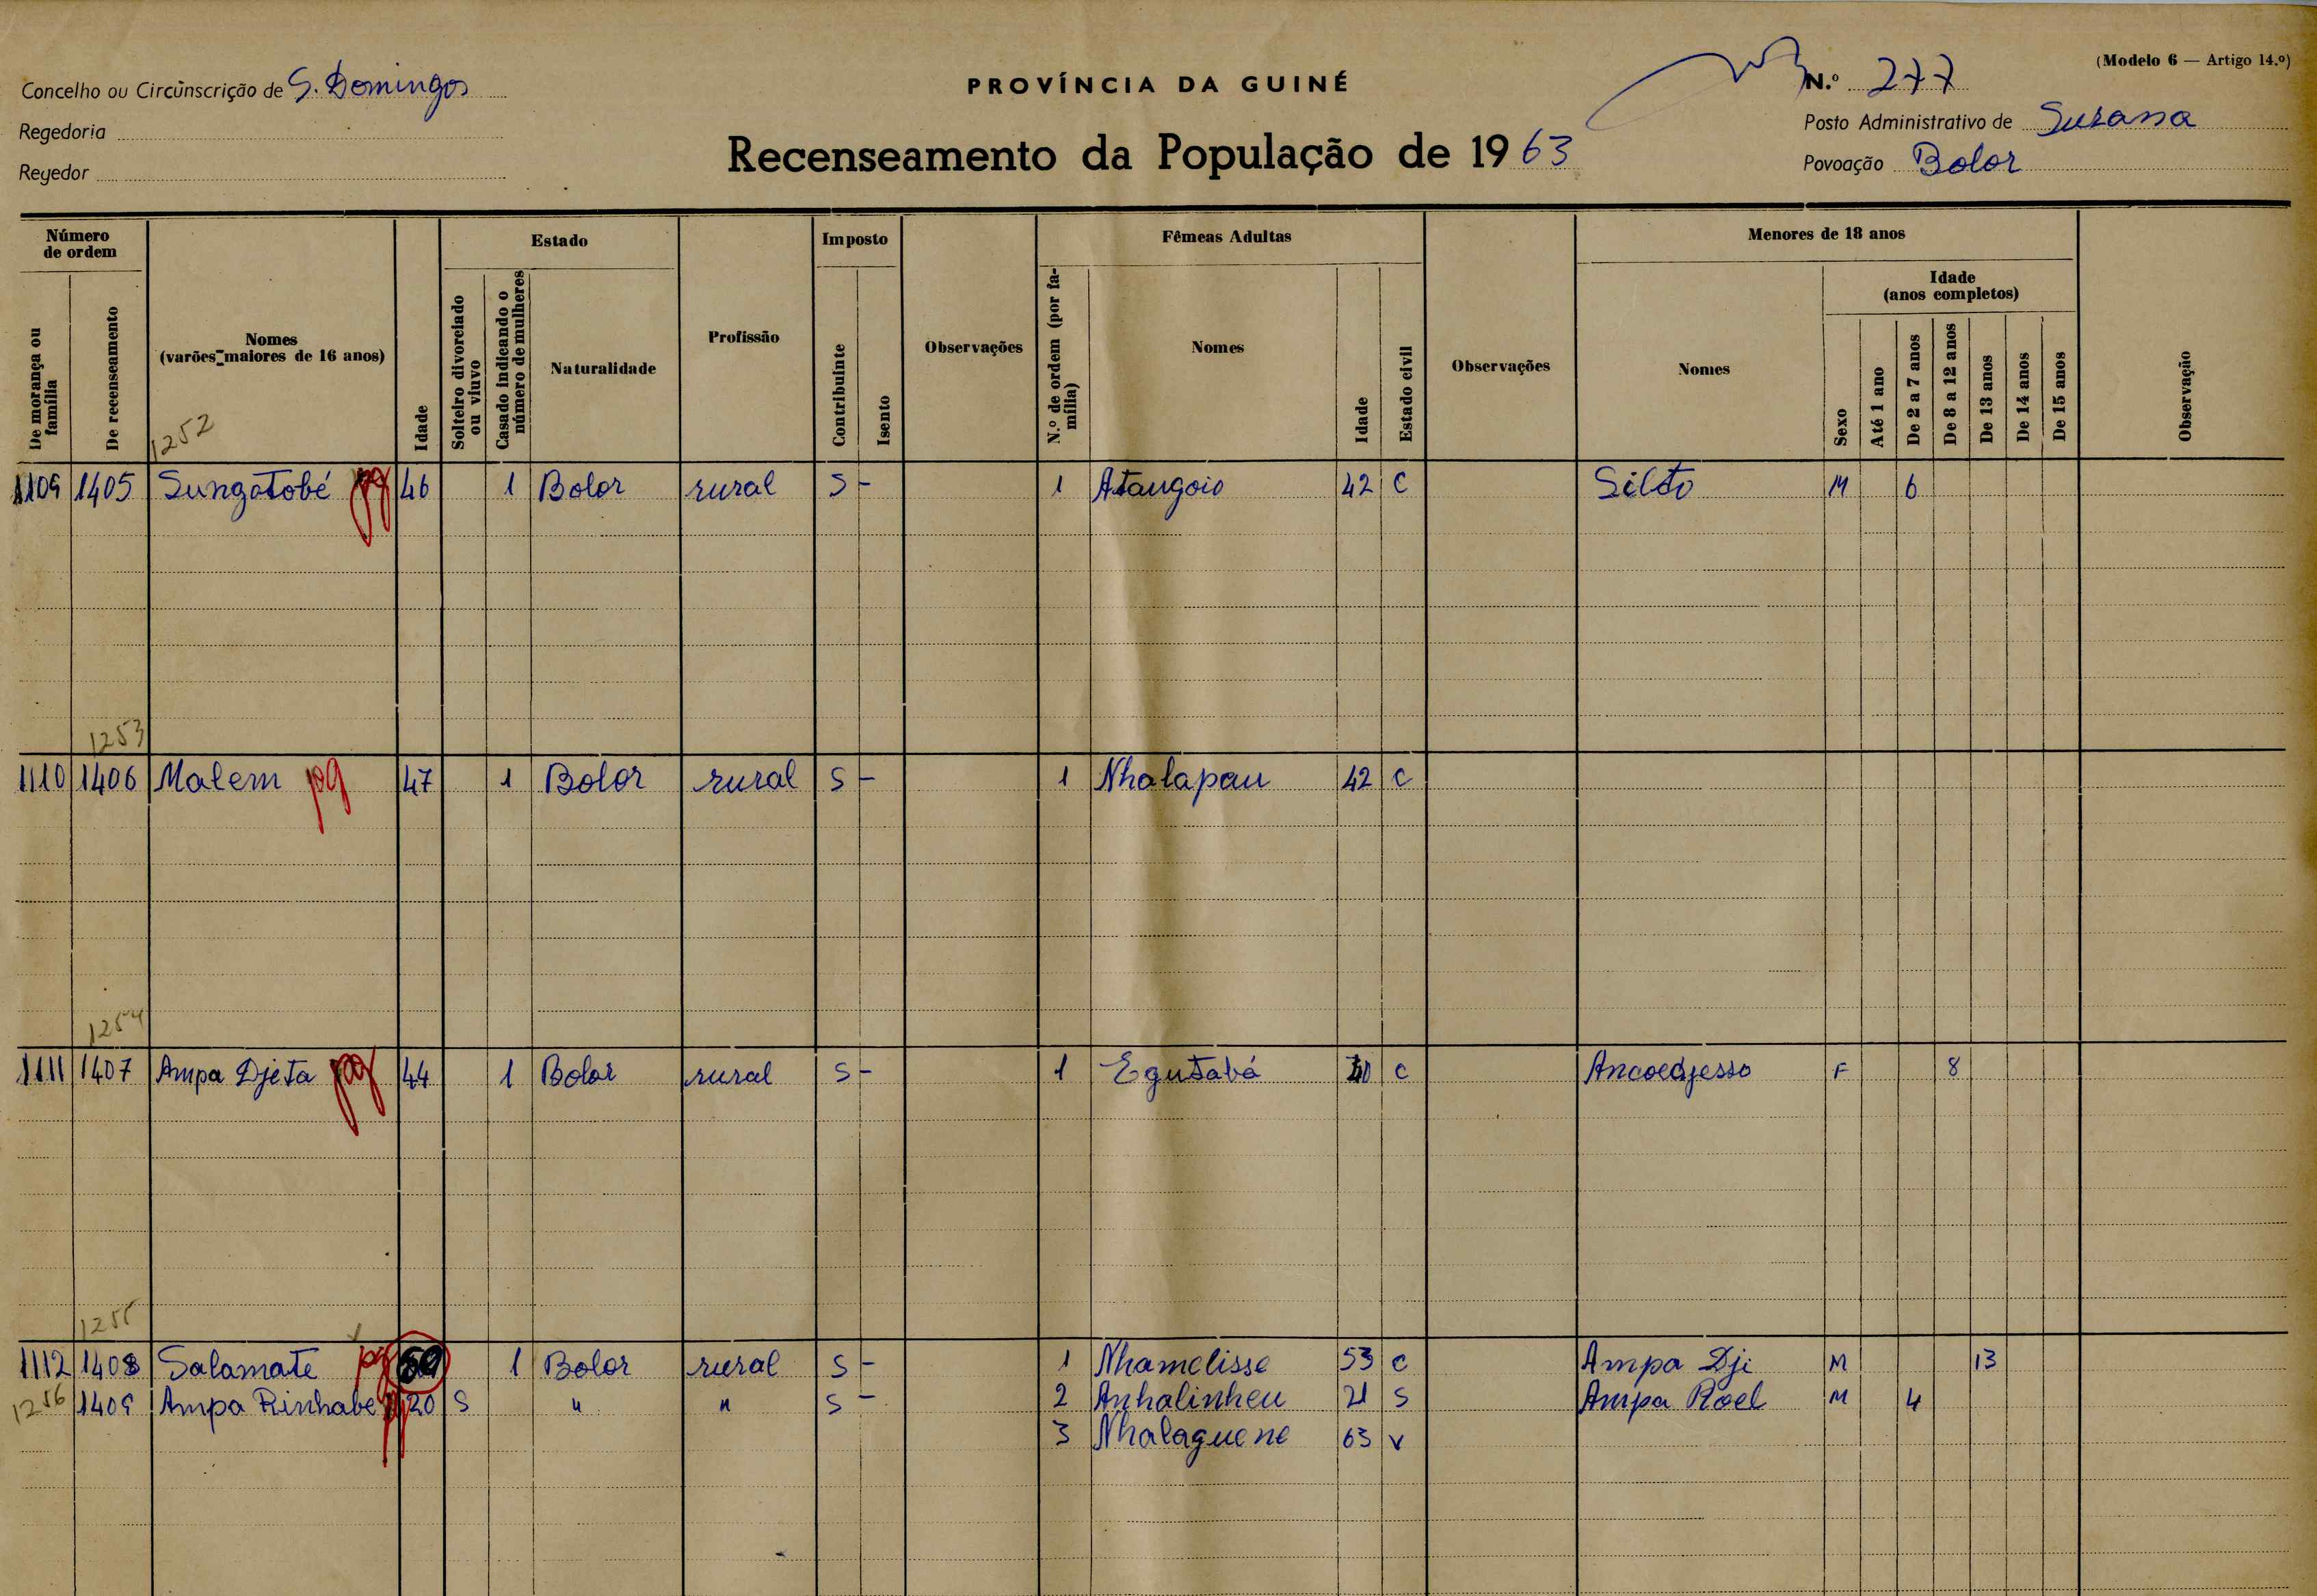 (Modelo 6 — Artigo 14.º)
Concelho ou Circunscrição de S. Domingos
PROVÍNCIA DA GUINÉ
N.º 277
Regedoria
Recenseamento da População de 1963
Posto Administrativo de Susana
Regedor
Povoação Bolor
Número de ordem
Estado
Imposto
Fêmeas Adultas
Menores de 18 anos
De morança ou família
De recenseamento
Nomes (varões maiores de 16 anos)
Idade
Solteiro divorciado ou viuvo
Casado indicando o número de mulheres
Naturalidade
Profissão
Contribuinte
Isento
Observações
N.º de ordem (por família)
Nomes
Idade
Estado civil
Observações
Nomes
Sexo
Idade (anos completos)
Até 1 ano
De 2 a 7 anos
De 8 a 12 anos
De 13 anos
De 14 anos
De 15 anos
Observação
1252
1109 1405 Sungotobé pg 46 1 Bolor rural S - 1 Atangoio 42 C Silto M 6
1253
1110 1406 Malem pg 47 1 Bolor rural S - 1 Nhalapau 42 C
1254
1111 1407 Ampa Djeta pg 44 1 Bolor rural S - 1 Egutabá 40 C Ancoedjesso F 8
1255
1112 1408 Salamate pg 1 Bolor rural S - 1 Nhamelisse 53 C Ampa Dji M 13
1256 1409 Ampa Rinhabe pg 20 S " " S - 2 Anhalinheu 21 S Ampa Roel M 4
3 Nhalaguene 63 V